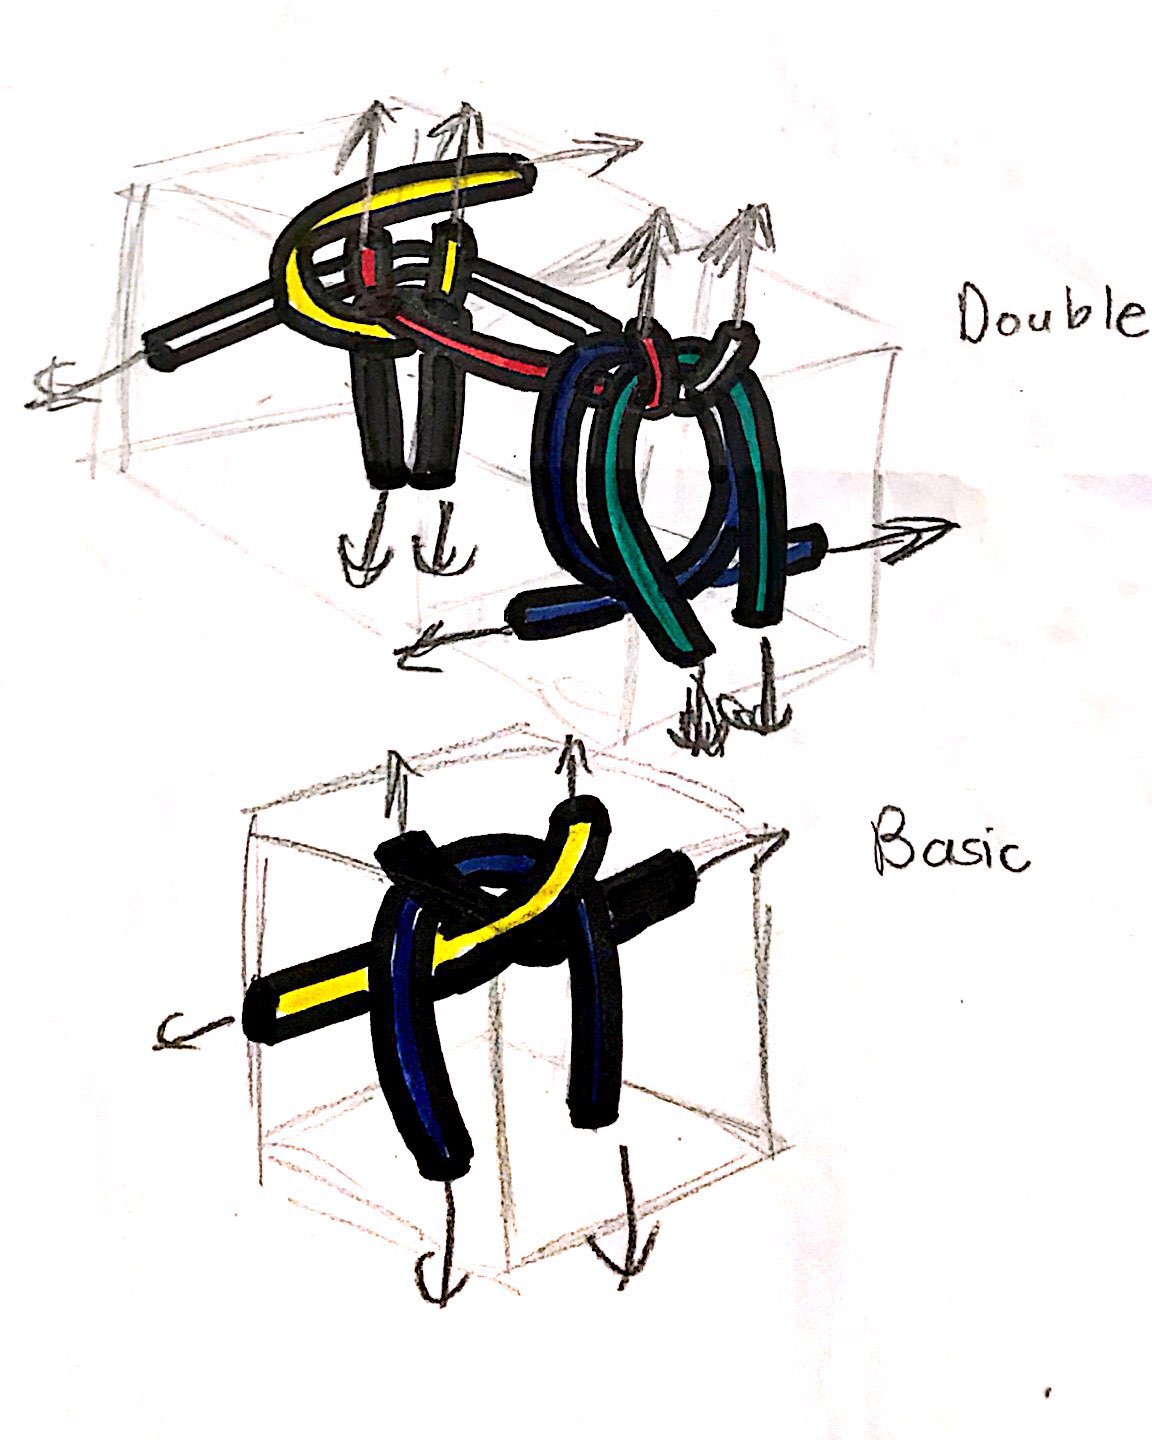 Double
Basic